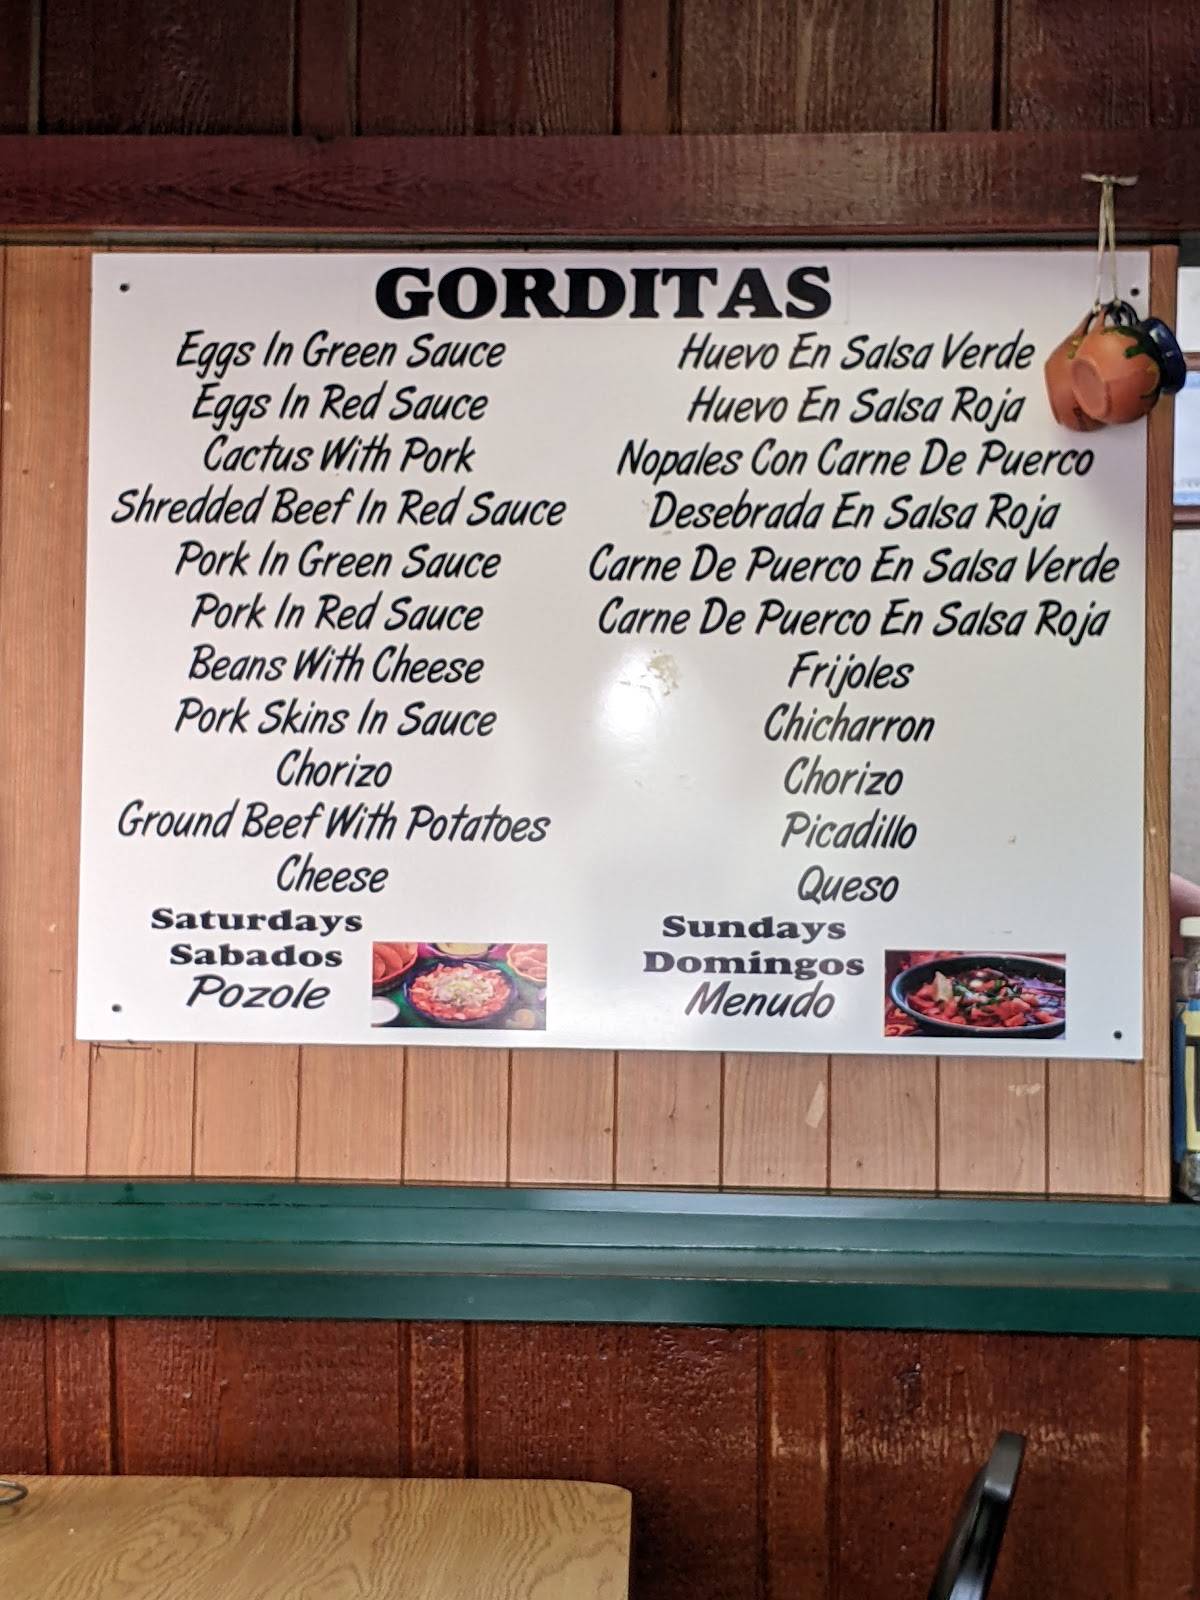 GORDITAS
Eggs In Green Sauce
Eggs In Red Sauce
Cactus With Pork
Shredded Beef In Red Sauce
Pork In Green Sauce
Pork In Red Sauce
Beans With Cheese
Pork Skins In Sauce
Chorizo
Ground Beef With Potatoes
Cheese
Huevo En Salsa Verde
Huevo En Salsa Roja
Nopales Con Carne De Puerco
Desebrada En Salsa Roja
Carne De Puerco En Salsa Verde
Carne De Puerco En Salsa Roja
Frijoles
Chicharron
Chorizo
Picadillo
Queso
Saturdays
Sabados
Pozole
Sundays
Domingos
Menudo